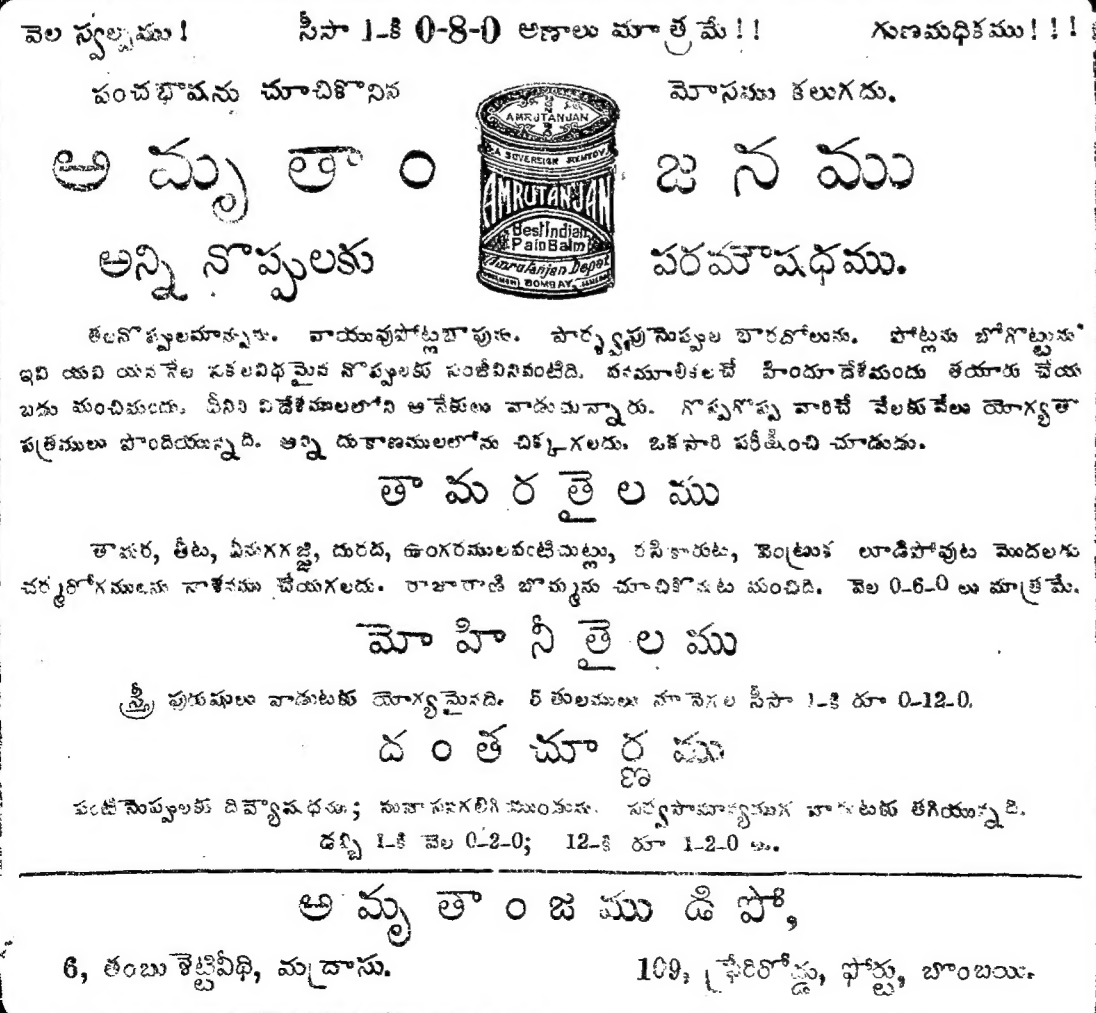 వెల స్వల్పము! సీసా 1-కి 0-8-0 అణాలు మాత్రమే!! గుణమధికము!!!
పంచభాషను చూచికొనిన మోసము కలుగదు.
అమృతాంజనము
AMRUTANJAN
A SOVEREIGN REMEDY
AMRUTANJAN
Best Indian
Pain Balm
Amrutanjan Depot
BOMBAY
అన్ని నొప్పులకు పరమౌషధము.
తలనొప్పులమాన్పును. వాయువుపోట్లబాపును. పార్శ్వపునెప్పుల భారదోలును. పోట్లను బోగొట్టును
ఇవి యవి యననేల సకలవిధమైన నొప్పులకు సంజీవినివంటిది. వనమూలికలచే హిందూదేశమందు తయారు చేయ
బడు మంచిమందు. దీనిని విదేశములలోని అనేకులు వాడుచున్నారు. గొప్పగొప్ప వారిచే వేలకువేలు యోగ్యతా
పత్రములు పొందియున్నది. అన్ని దుకాణములలోను చిక్కగలదు. ఒకసారి పరీక్షించి చూడుడు.
తామరతైలము
తామర, తీట, ఏనుగగజ్జి, దురద, ఉంగరములవంటిచుట్లు, రసికారుట, వెంట్రుక లూడిపోవుట మొదలగు
చర్మరోగములను నాశనము చేయగలదు. రాజారాణి బొమ్మను చూచికొనుట మంచిది. వెల 0-6-0 లు మాత్రమే.
మోహినీతైలము
స్త్రీ పురుషులు వాడుటకు యోగ్యమైనది. 5 తులములు నూనెగల సీసా 1-కి రూ 0-12-0.
దంతచూర్ణము
పంటినెప్పులకు దివ్యౌషధము; సువాసనగలిగి యుండును. సర్వసామాన్యముగ వాడుటకు తగియున్నది.
డబ్బి 1-కి వెల 0-2-0; 12-కి రూ 1-2-0 లు.
అమృతాంజము డిపో,
6, తంబుశెట్టివీధి, మద్రాసు. 109, ఫ్రేరిరోడ్డు, ఫోర్టు, బొంబయి.